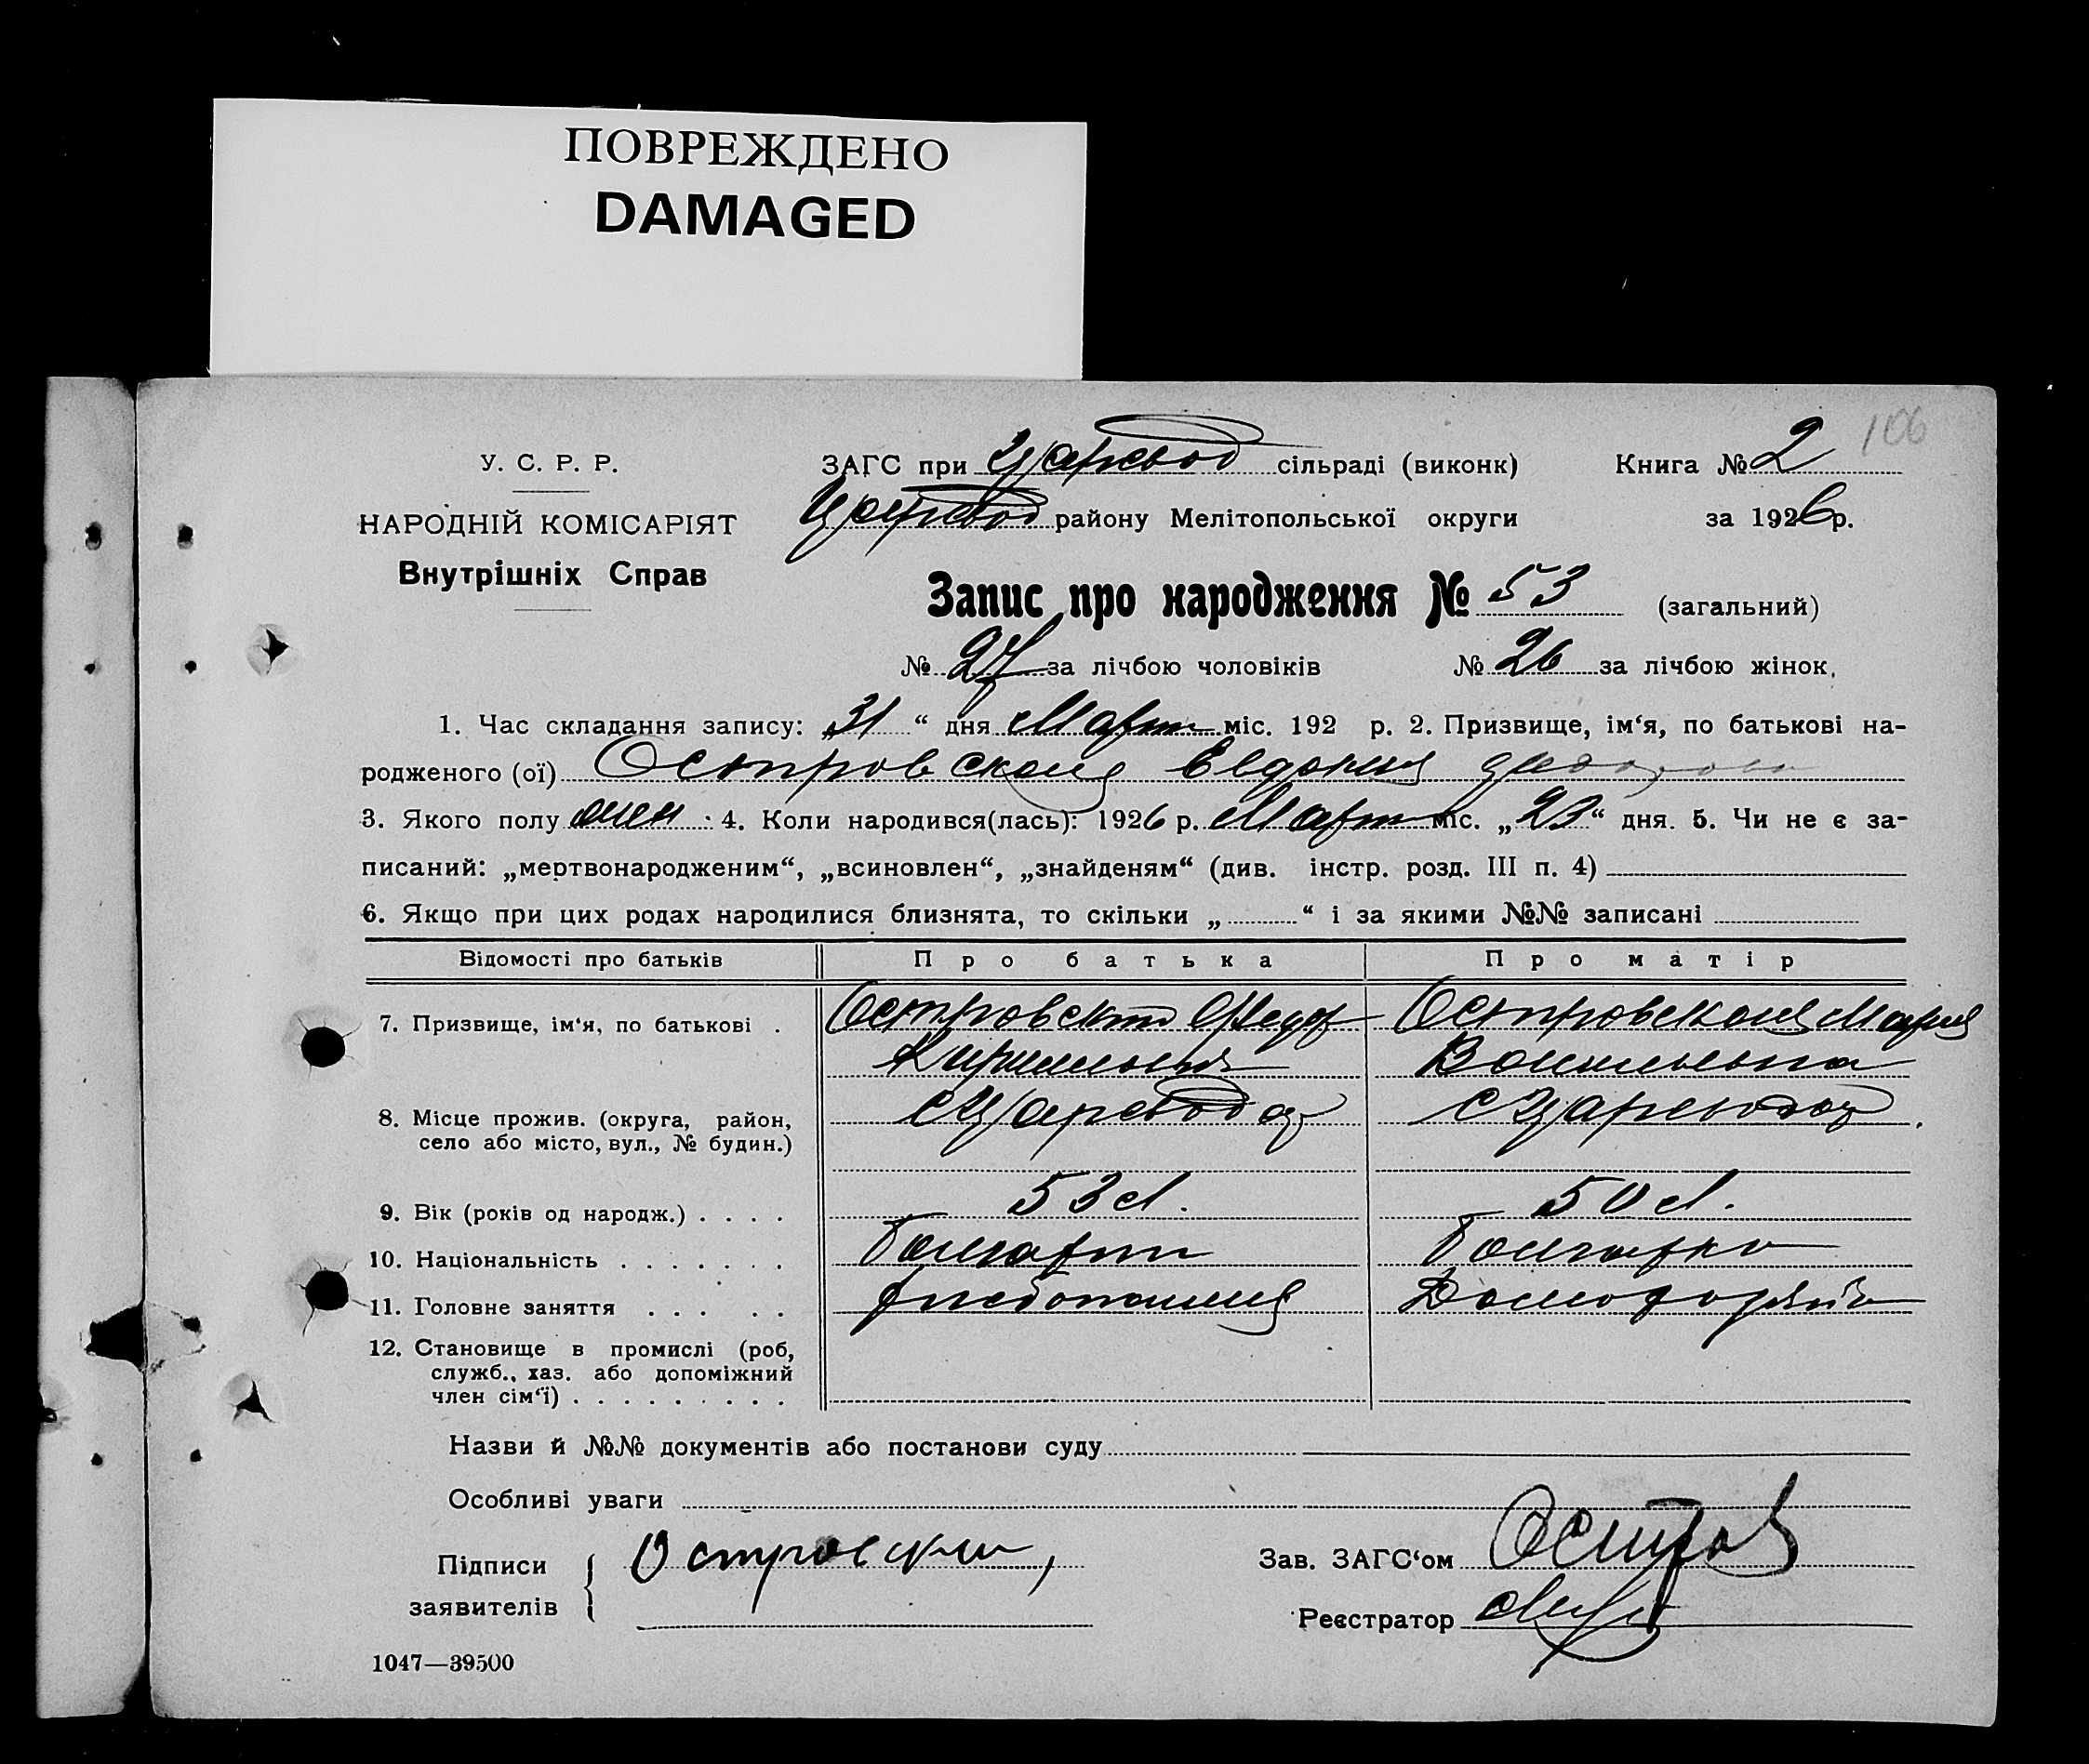 ПОВРЕЖДЕНО
DAMAGED
106
У. С. Р. Р.
НАРОДНІЙ КОМІСАРІЯТ
Внутрішніх Справ
ЗАГС при Царевод сільраді (виконк) Книга № 2
Царевод району Мелітопольської округи за 1926 р.
Запис про народження № 53 (загальний)
№ 27 за лічбою чоловіків № 26 за лічбою жінок,
1. Час складання запису: „31“ дня Март міс. 192 р. 2. Призвище, ім‘я, по батькові на-
родженого (ої) Островская Евдокия
3. Якого полу жен. 4. Коли народився(лась): 1926 р. Март міс. „23“ дня. 5. Чи не є за-
писаний: „мертвонародженим“, „всиновлен“, „знайденям“ (див. інстр. розд. III п. 4)
6. Якщо при цих родах народилися близнята, то скільки „ “ і за якими №№ записані
Відомості про батьків Про батька Про матір
7. Призвище, ім‘я, по батькові . Островский Федор Островская Мария
Кириллович Васильевна
8. Місце прожив. (округа, район, с Царевод с Царевод
село або місто, вул., № будин.)
9. Вік (років од народж.) . . . . 53 л. 50 л.
10. Національність . . . . . . . Болгарин Болгарка
11. Головне заняття . . . . . Хлебопашец
12. Становище в промислі (роб,
служб., хаз. або допоміжний
член сім‘ї) . . . . . . . . .
Назви й №№ документів або постанови суду
Особливі уваги
Підписи Островский Зав. ЗАГС‘ом
заявителів Реєстратор
1047—39500